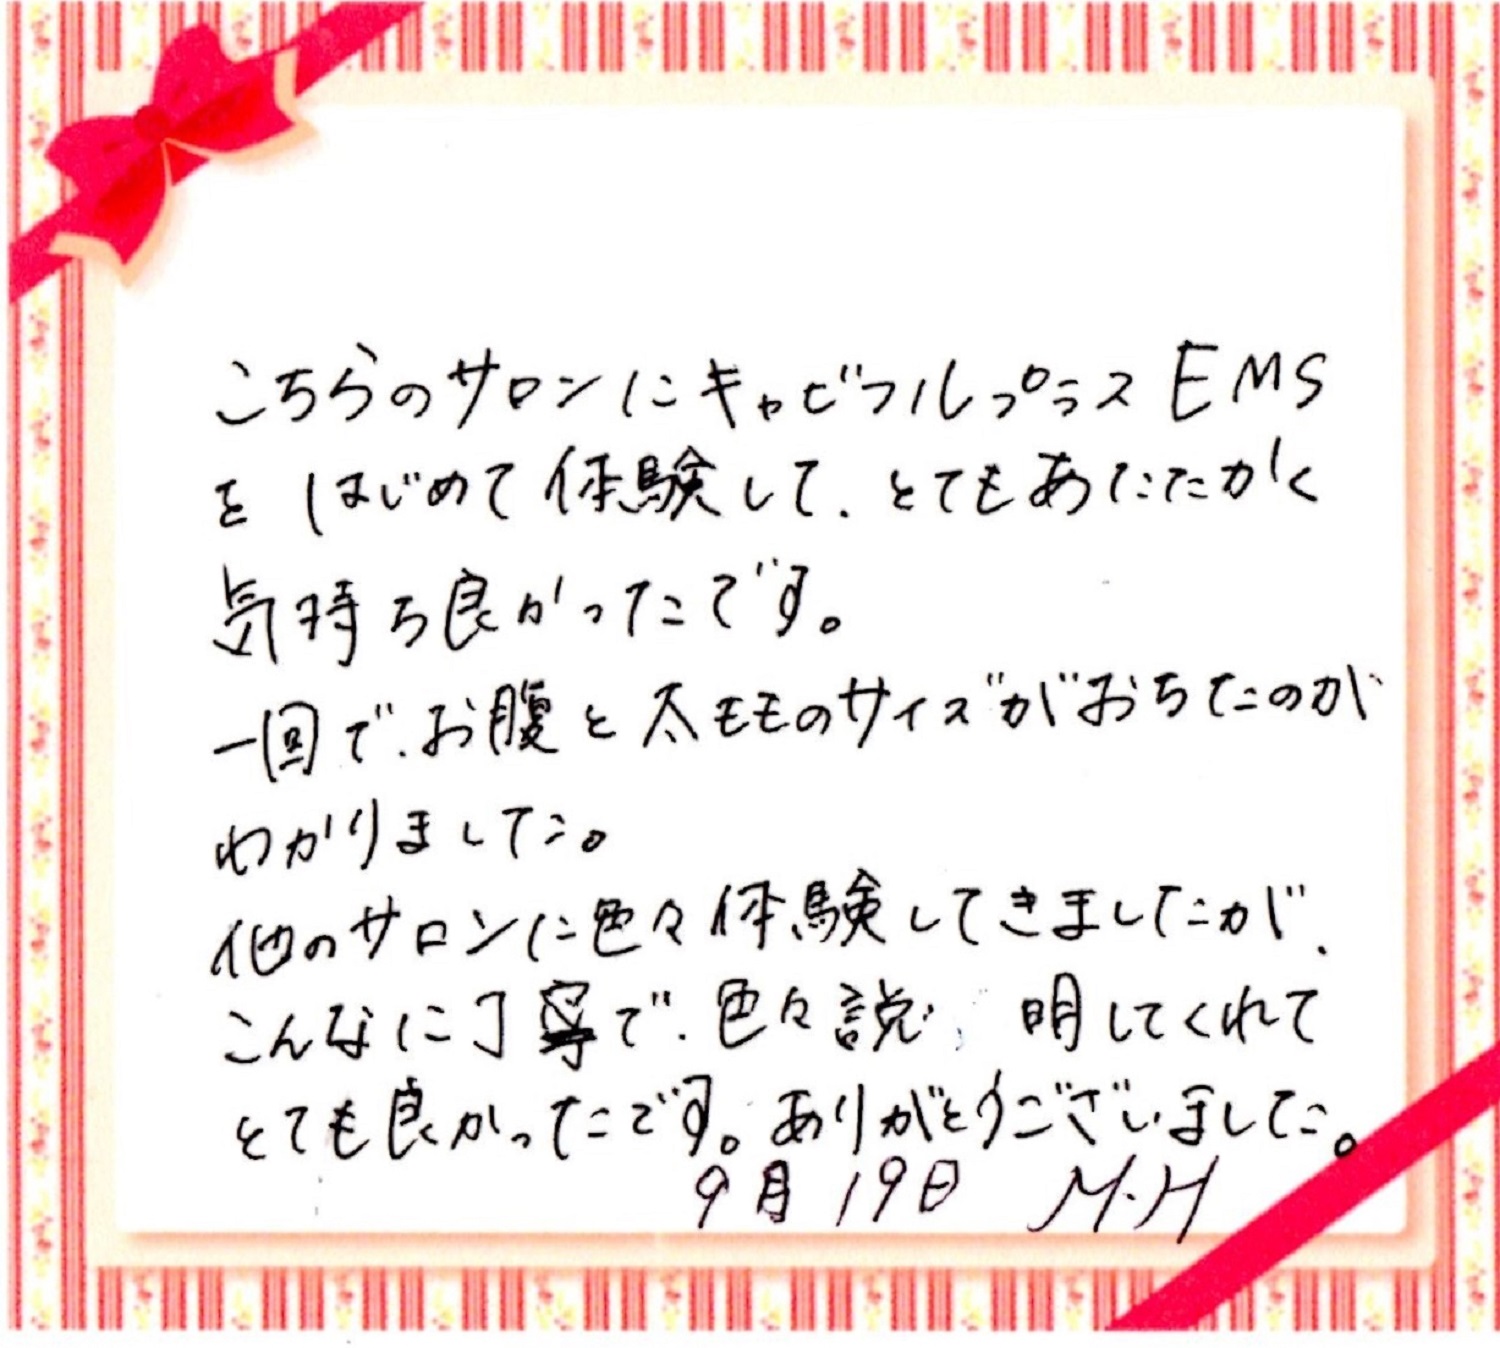 こちらのサロンにキャビフルプラスEMS
をはじめて体験して、とてもあたたかく
気持ち良かったです。
一回で、お腹と太モモのサイズがおちたのが
わかりました。
他のサロンに色々体験してきましたが、
こんなに丁寧で、色々説明してくれて
とても良かったです。ありがとうございました。
9月19日 M.H